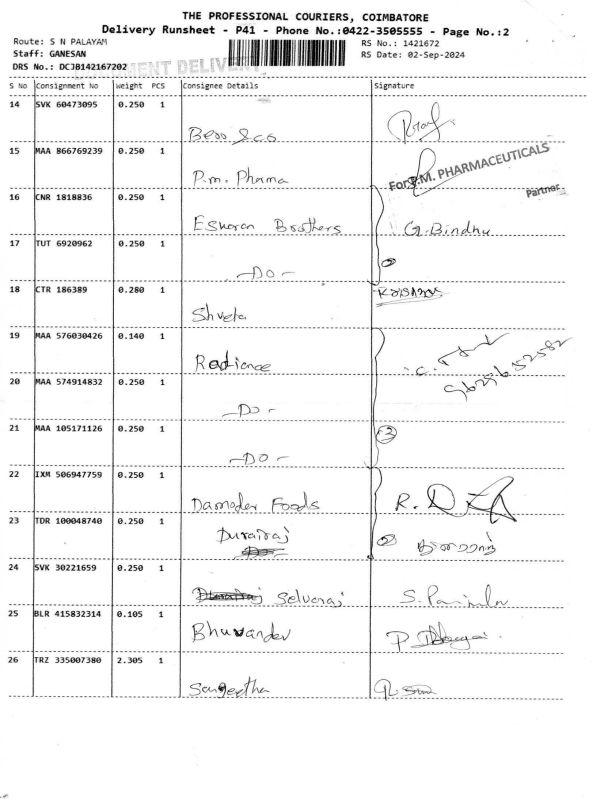 THE PROFESSIONAL COURIERS, COIMBATORE
Delivery Runsheet - P41 - Phone No.:0422-3505555 - Page No.:2
Route: S N PALAYAM
RS No.: 1421672
Staff: GANESAN
RS Date: 02-Sep-2024
DRS No.: DCJB142167202
DELIVERY
S No Consignment No Weight PCS Consignee Details Signature
14 SVK 60473095 0.250 1
Bero & co
15 MAA 866769239 0.250 1
P.m. Pharma
For P.M. PHARMACEUTICALS
Partner
16 CNR 1818836 0.250 1
Eswaran Brothers G. Bindhu
17 TUT 6920962 0.250 1
- Do -
18 CTR 186389 0.280 1
Shveta
19 MAA 576030426 0.140 1
Radiance
9629652582
20 MAA 574914832 0.250 1
- Do -
21 MAA 105171126 0.250 1
- Do -
22 IXM 506947759 0.250 1
Damoder Foods
23 TDR 100048740 0.250 1
Durairaj
24 SVK 30221659 0.250 1
Selvaraj
25 BLR 415832314 0.105 1
Bhuvander
26 TRZ 335007380 2.305 1
Sangeetha